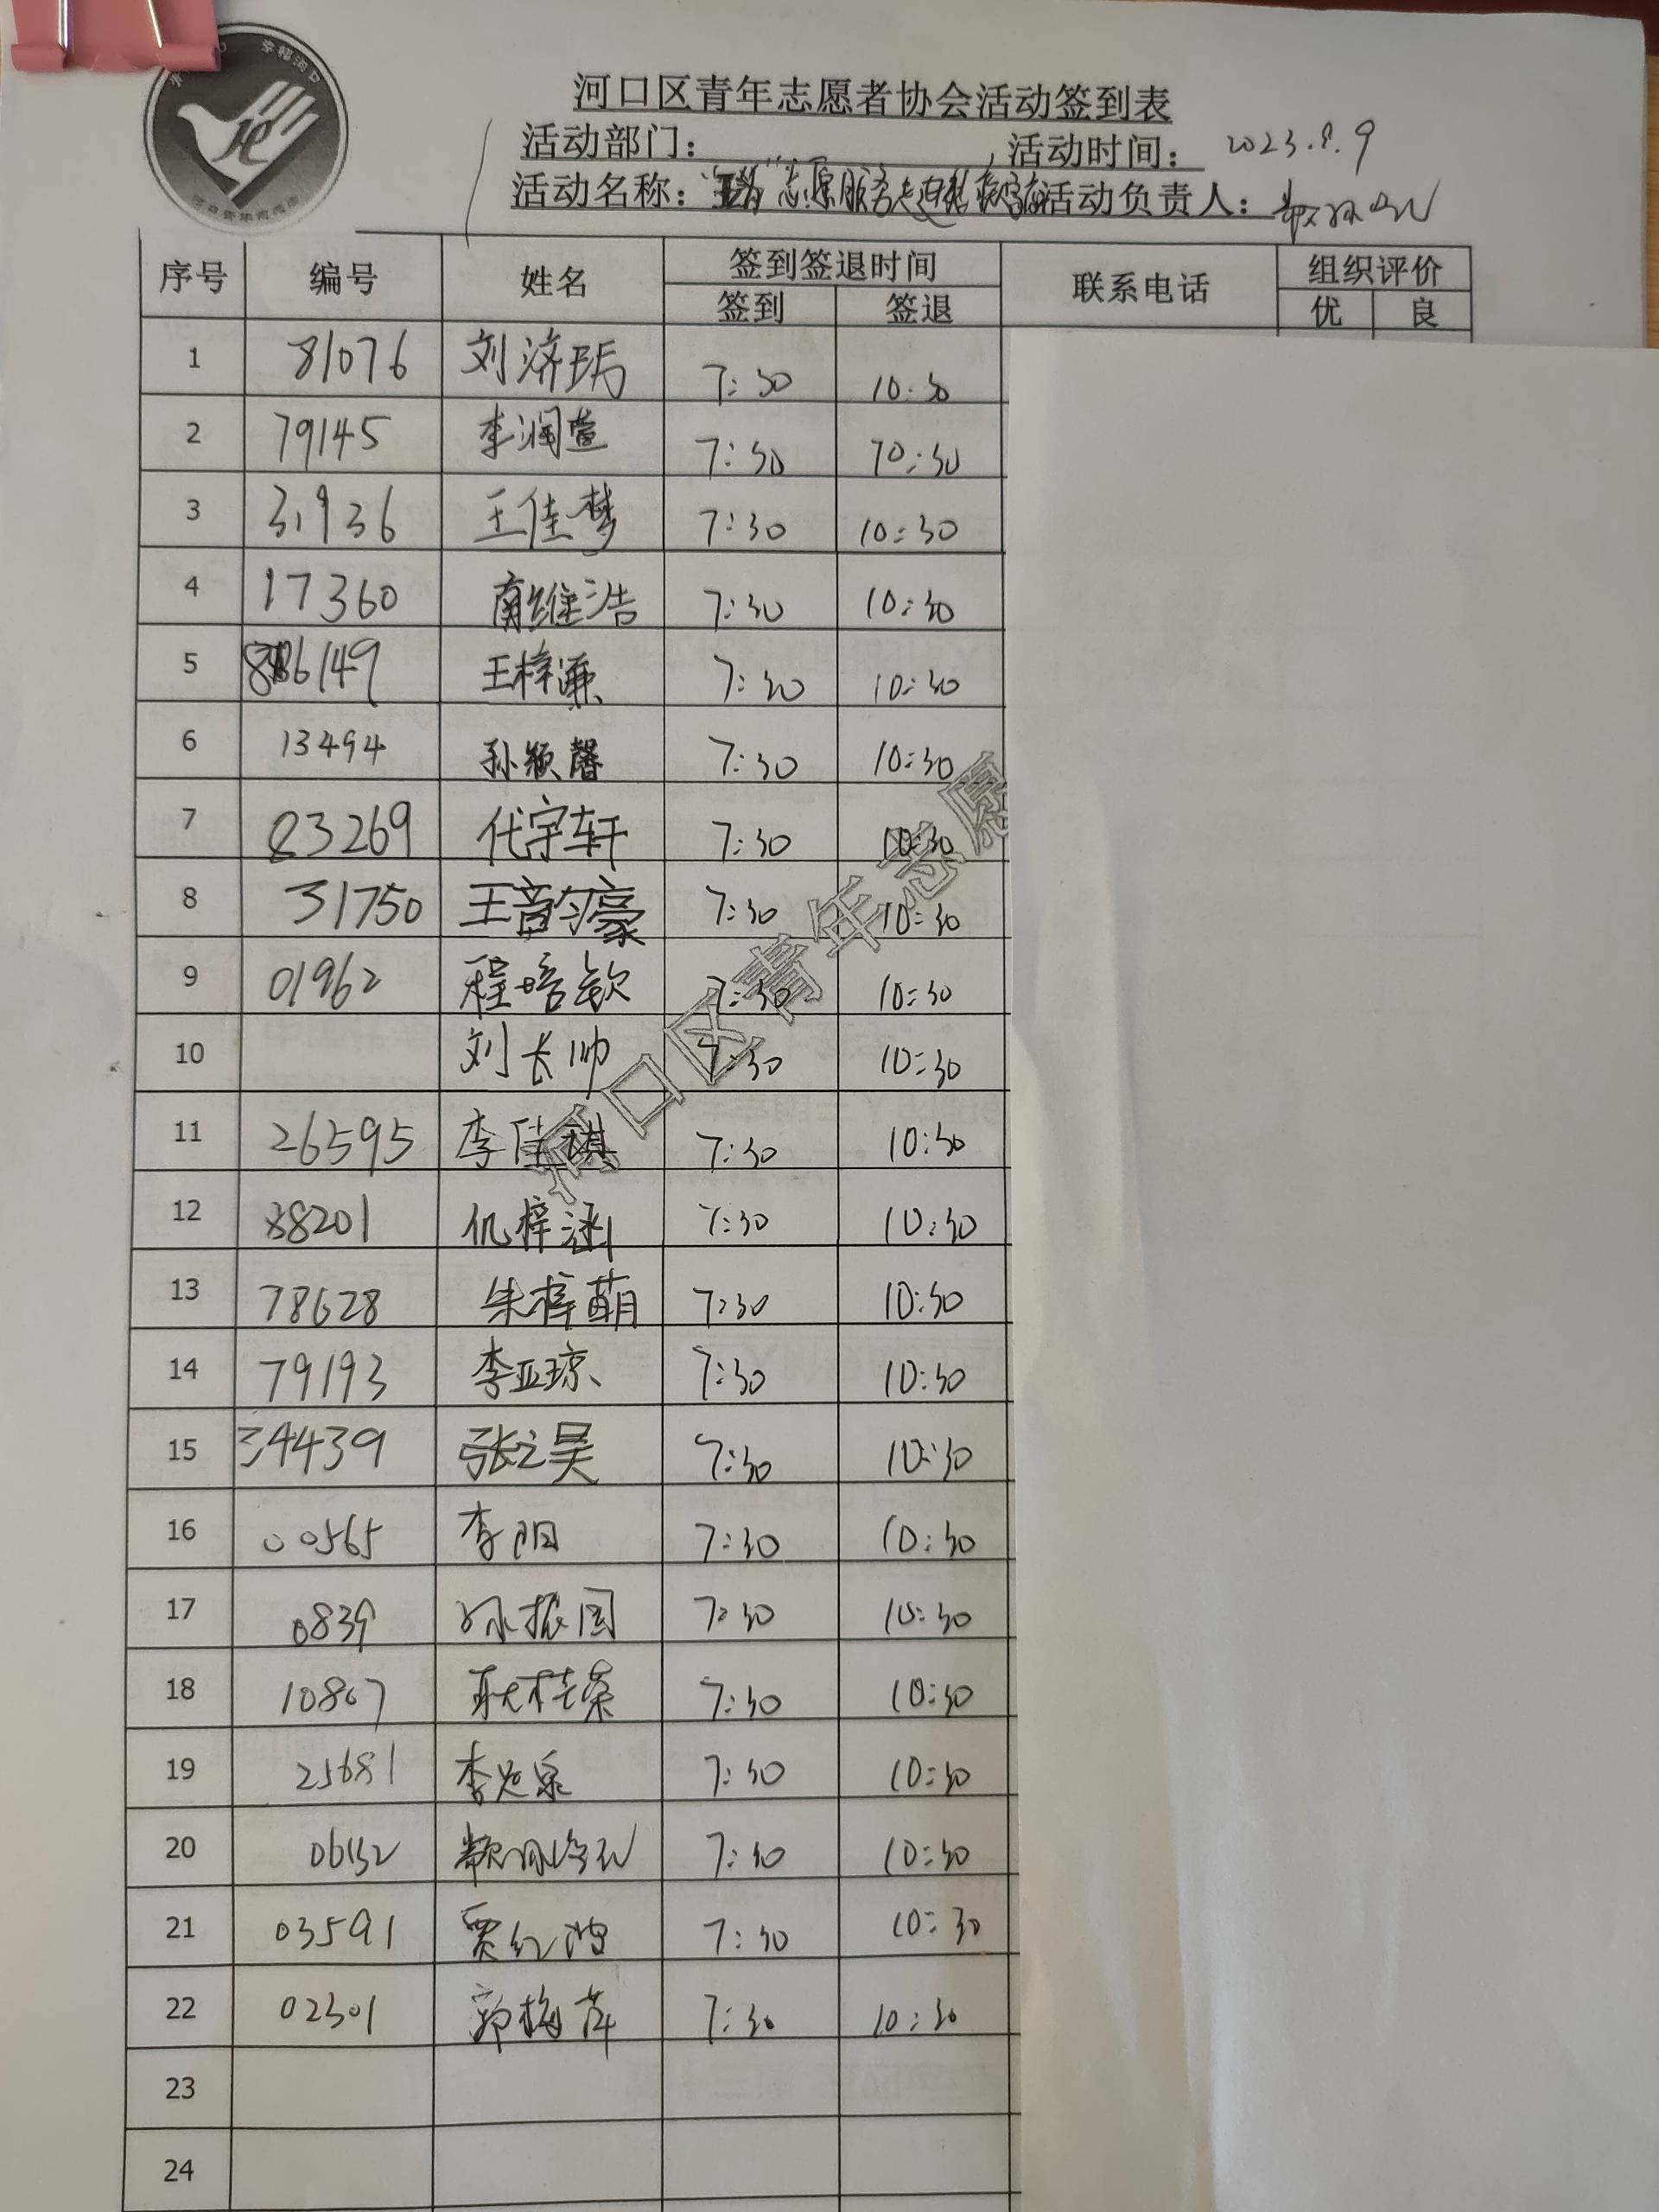 河口区青年志愿者协会活动签到表
活动部门： 活动时间： 2023.8.9
活动名称： 志愿服务走进 活动负责人：
序号 编号 姓名 签到签退时间 联系电话 组织评价
签到 签退 优 良
1 81076 刘济瑀 7:30 10:30
2 79145 李润萱 7:30 10:30
3 31936 王佳梦 7:30 10:30
4 17360 南维浩 7:30 10:30
5 86149 王梓濂 7:30 10:30
6 13494 孙颖馨 7:30 10:30
7 23269 代宇轩 7:30 10:30
8 31750 王韵豪 7:30 10:30
9 01962 程培钦 7:30 10:30
10 刘长帅 7:30 10:30
11 26595 李佳祺 7:30 10:30
12 38201 仉梓涵 7:30 10:30
13 78628 朱梓萌 7:30 10:30
14 79193 李亚琼 7:30 10:30
15 34439 张之昊 7:30 10:30
16 00565 李阳 7:30 10:30
17 0839 孙振国 7:30 10:30
18 10867 耿桂荣 7:30 10:30
19 25681 李 泉 7:30 10:30
20 7:30 10:30
21 03591 贾红 7:30 10:30
22 02301 郭梅萍 7:30 10:30
23
24
河口区青年志愿